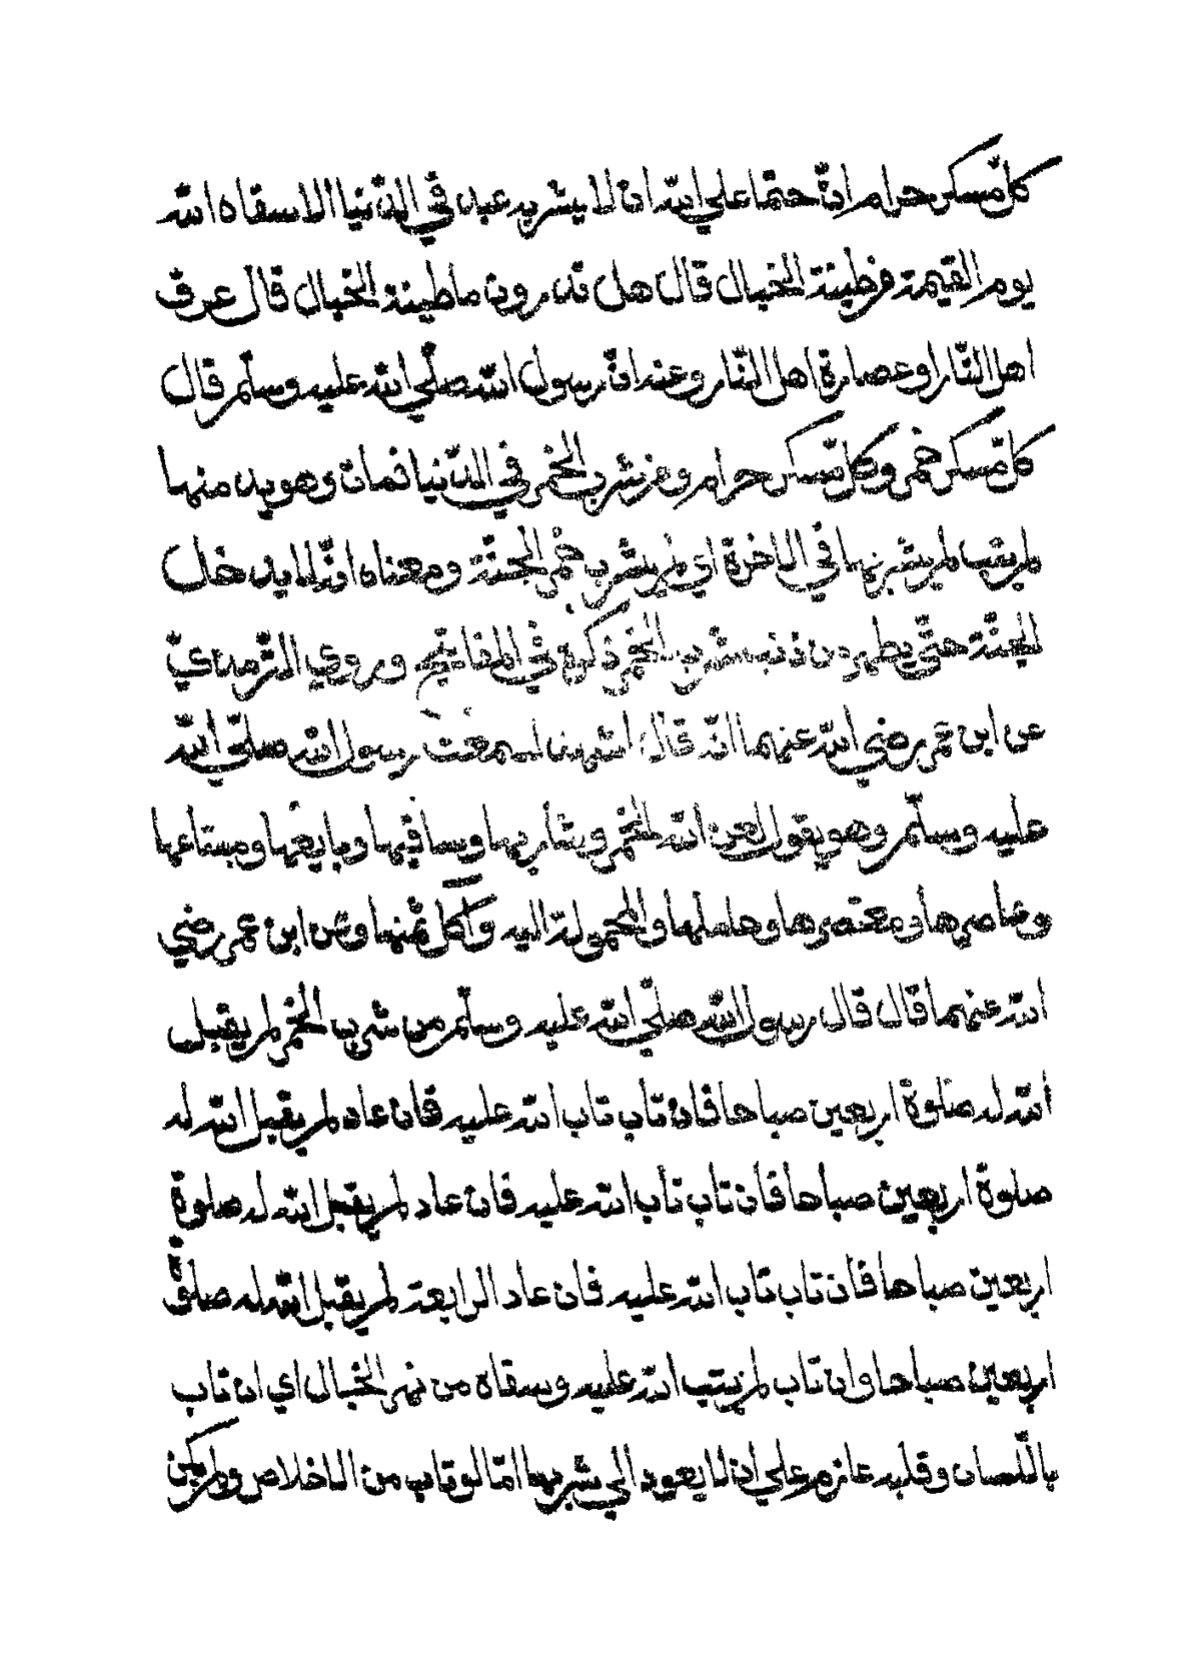 كلّ مسكر حرام انّ حتما علي الله ان لا يشربه عبد في الدّنيا الا سقاه الله
يوم القيمة من طينة الخبال قال هل تدرون ما طينة الخبال قال عرق
اهل النّار او عصارة اهل النّار وعنه انّ رسول الله صلّي الله عليه وسلّم قال
كلّ مسكر خمر وكلّ مسكر حرام ومن شرب الخمر في الدّنيا فمات وهو يدمنها
لم يتب لم يشربها في الاخرة اي لم يشرب خمر الجنّة ومعناه انّه لا يدخل
الجنّة حتّي يطهر من ذنب شرب الخمر ذكره في المفاتيح وروي الترمذيّ
عن ابن عمر رضي الله عنهما انّه قال اشهد لسمعت رسول الله صلّي الله
عليه وسلّم وهو يقول لعن الله الخمر وشاربها وساقيها وبايعها ومبتاعها
وعاصرها ومعتصرها وحاملها والمحمولة اليه وآكل ثمنها وعن ابن عمر رضي
الله عنهما قال قال رسول الله صلّي الله عليه وسلّم من شرب الخمر لم يقبل
الله له صلوة اربعين صباحا فان تاب تاب الله عليه فان عاد لم يقبل الله له
صلوة اربعين صباحا فان تاب تاب الله عليه فان عاد لم يقبل الله له صلوة
اربعين صباحا فان تاب تاب الله عليه فان عاد الرابعة لم يقبل الله له صلوة
اربعين صباحا وان تاب لم يتب الله عليه وسقاه من نهر الخبال اي ان تاب
باللّسان وقلبه عازم علي ان لا يعود الي شربها امّا لو تاب من الاخلاص ولم يكن